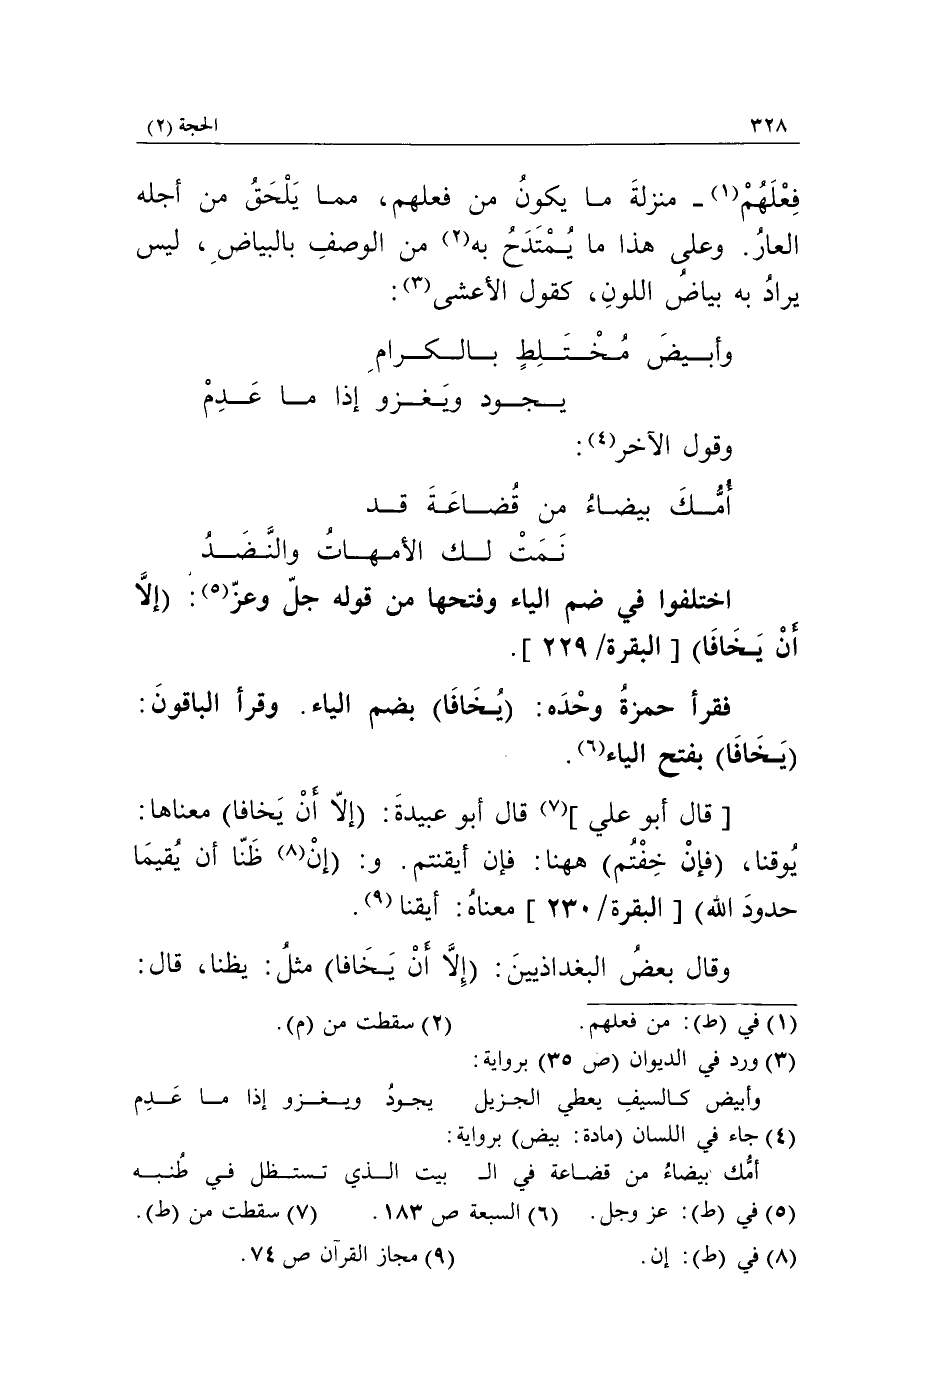 ٣٢٨ الحجة (٢)
فِعْلَهُمْ(١) ـ منزلةَ ما يكونُ من فعلهم، مما يَلْحَقُ من أجله
العارُ. وعلى هذا ما يُمْتَدَحُ به(٢) من الوصفِ بالبياضِ، ليس
يرادُ به بياضُ اللونِ، كقول الأعشى(٣):
وأبيضَ مُخْتَلِطٍ بالكرامِ
يجود ويَغزو إذا ما عَدِمْ
وقول الآخر(٤):
أُمُّكَ بيضاءُ من قُضاعَةَ قد
نَمَتْ لك الأمهاتُ والنَّضَدُ
اختلفوا في ضم الياء وفتحها من قوله جلّ وعزّ(٥): (إلاَّ
أَنْ يَخَافَا) [ البقرة/ ٢٢٩ ].
فقرأ حمزةُ وحْدَه: (يُخَافَا) بضم الياء. وقرأ الباقونَ:
(يَخَافَا) بفتح الياء(٦).
[ قال أبو علي ](٧) قال أبو عبيدةَ: (إلاّ أَنْ يَخافا) معناها:
يُوقنا، (فإنْ خِفْتُم) ههنا: فإن أيقنتم. و: (إنْ(٨) ظَنّا أن يُقيمَا
حدودَ الله) [ البقرة/ ٢٣٠ ] معناهُ: أيقنا(٩).
وقال بعضُ البغداذيينَ: (إِلاَّ أَنْ يَخَافا) مثلُ: يظنا، قال:
(١) في (ط): من فعلهم. (٢) سقطت من (م).
(٣) ورد في الديوان (ص ٣٥) برواية:
وأبيض كالسيفِ يعطي الجزيل يجودُ ويغزو إذا ما عَدِم
(٤) جاء في اللسان (مادة: بيض) برواية:
أمُّك بيضاءُ من قضاعة في الـ بيت الذي تستظل في طُنبه
(٥) في (ط): عز وجل. (٦) السبعة ص ١٨٣. (٧) سقطت من (ط).
(٨) في (ط): إن. (٩) مجاز القرآن ص ٧٤.